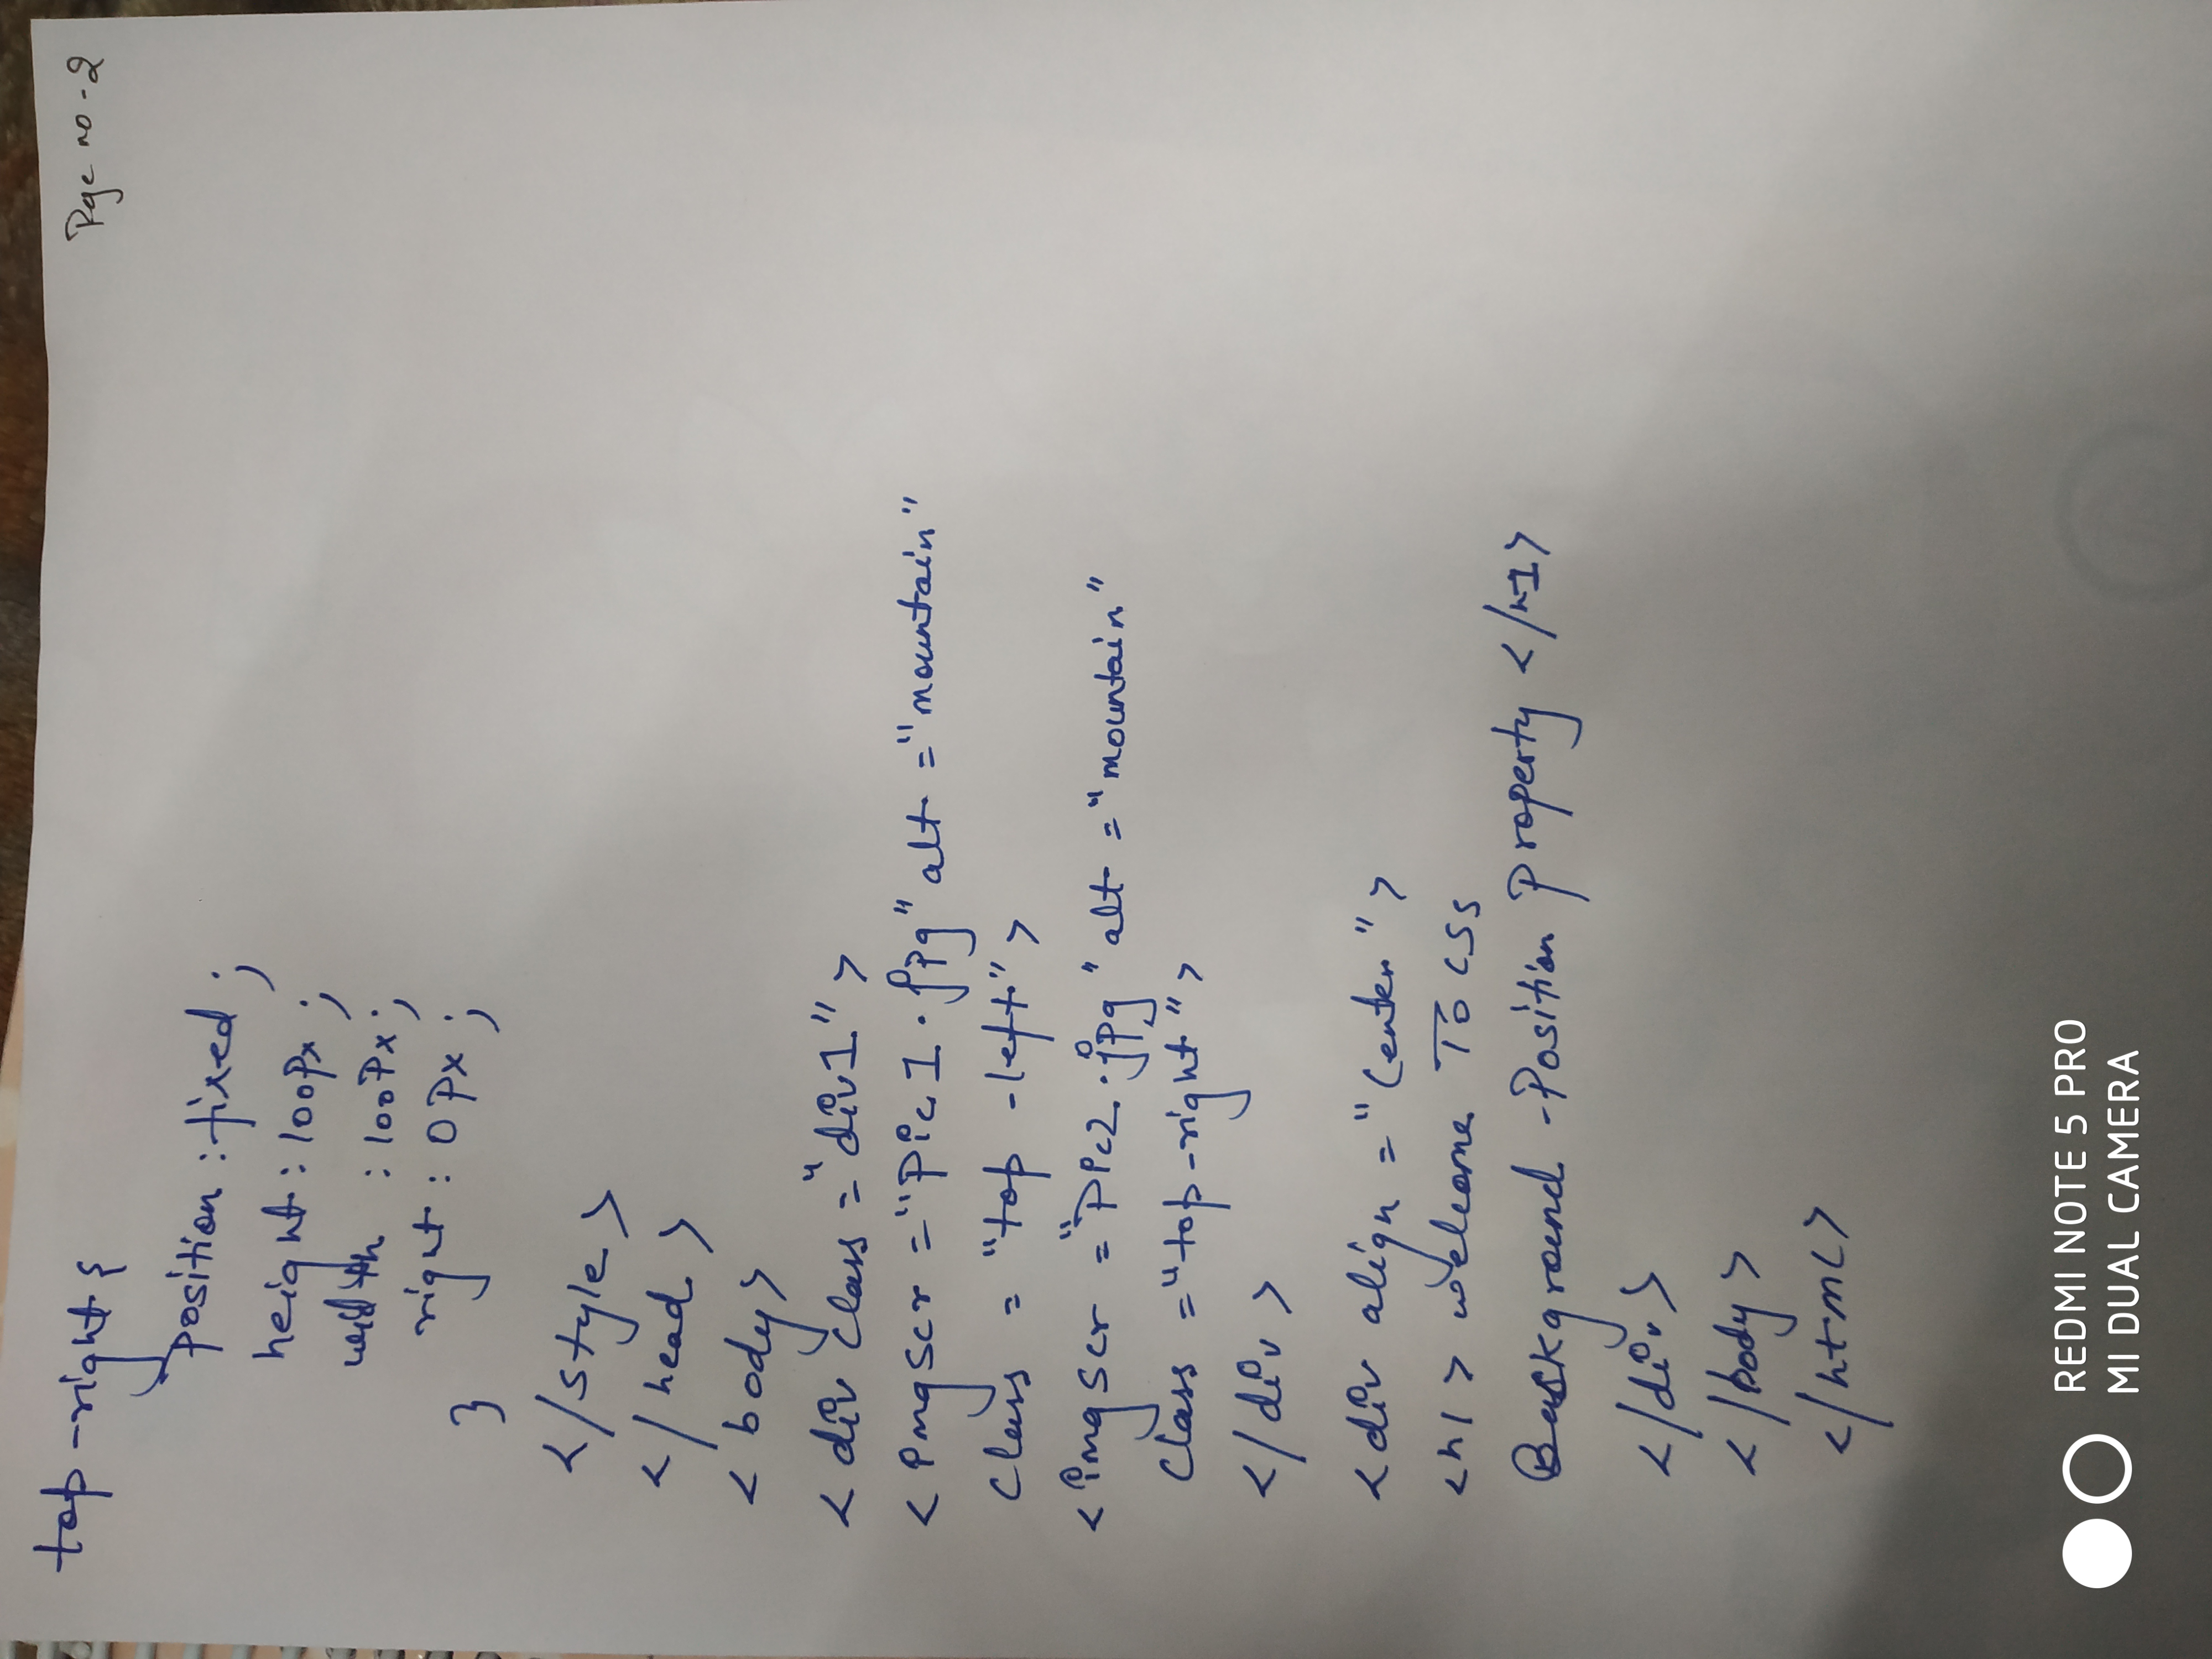 top-right {
Page no-2
position : fixed ;
height : 100px ;
width : 100px ;
right : 0px ;
}
</style>
</head>
<body>
<div class="div1">
<imgscr ="Pic1.jpg" alt ="mountain"
Class = "top -left">
<imgscr ="Pic2.jpg" alt ="mountain"
Class ="top-right">
</div>
<div align ="Center">
<h1> welcome To CSS
Background -Position Property </h1>
</div>
</body>
</html>
REDMI NOTE 5 PRO
MI DUAL CAMERA